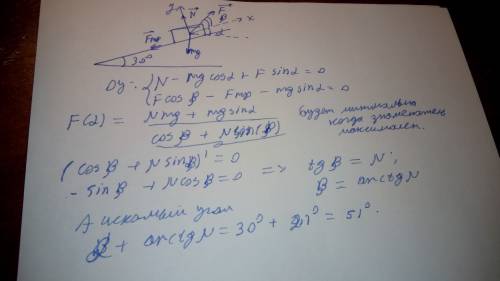 y N F
β → x
Fтр
mg
30°
Oy: { N - mg cos2 + F sin2 = 0
{ F cosβ - Fтр - mg sin2 = 0
F(2) = Nmg + mg sin2 / cosβ + N sin(β)
будет минимальна когда знаменатель максимален.
(cosβ + N sinβ)' = 0
- sinβ + N cosβ = 0 => tgβ = N;
β = arctg N
А искомый угол
+ arctg N = 30° + 21° = 51°.